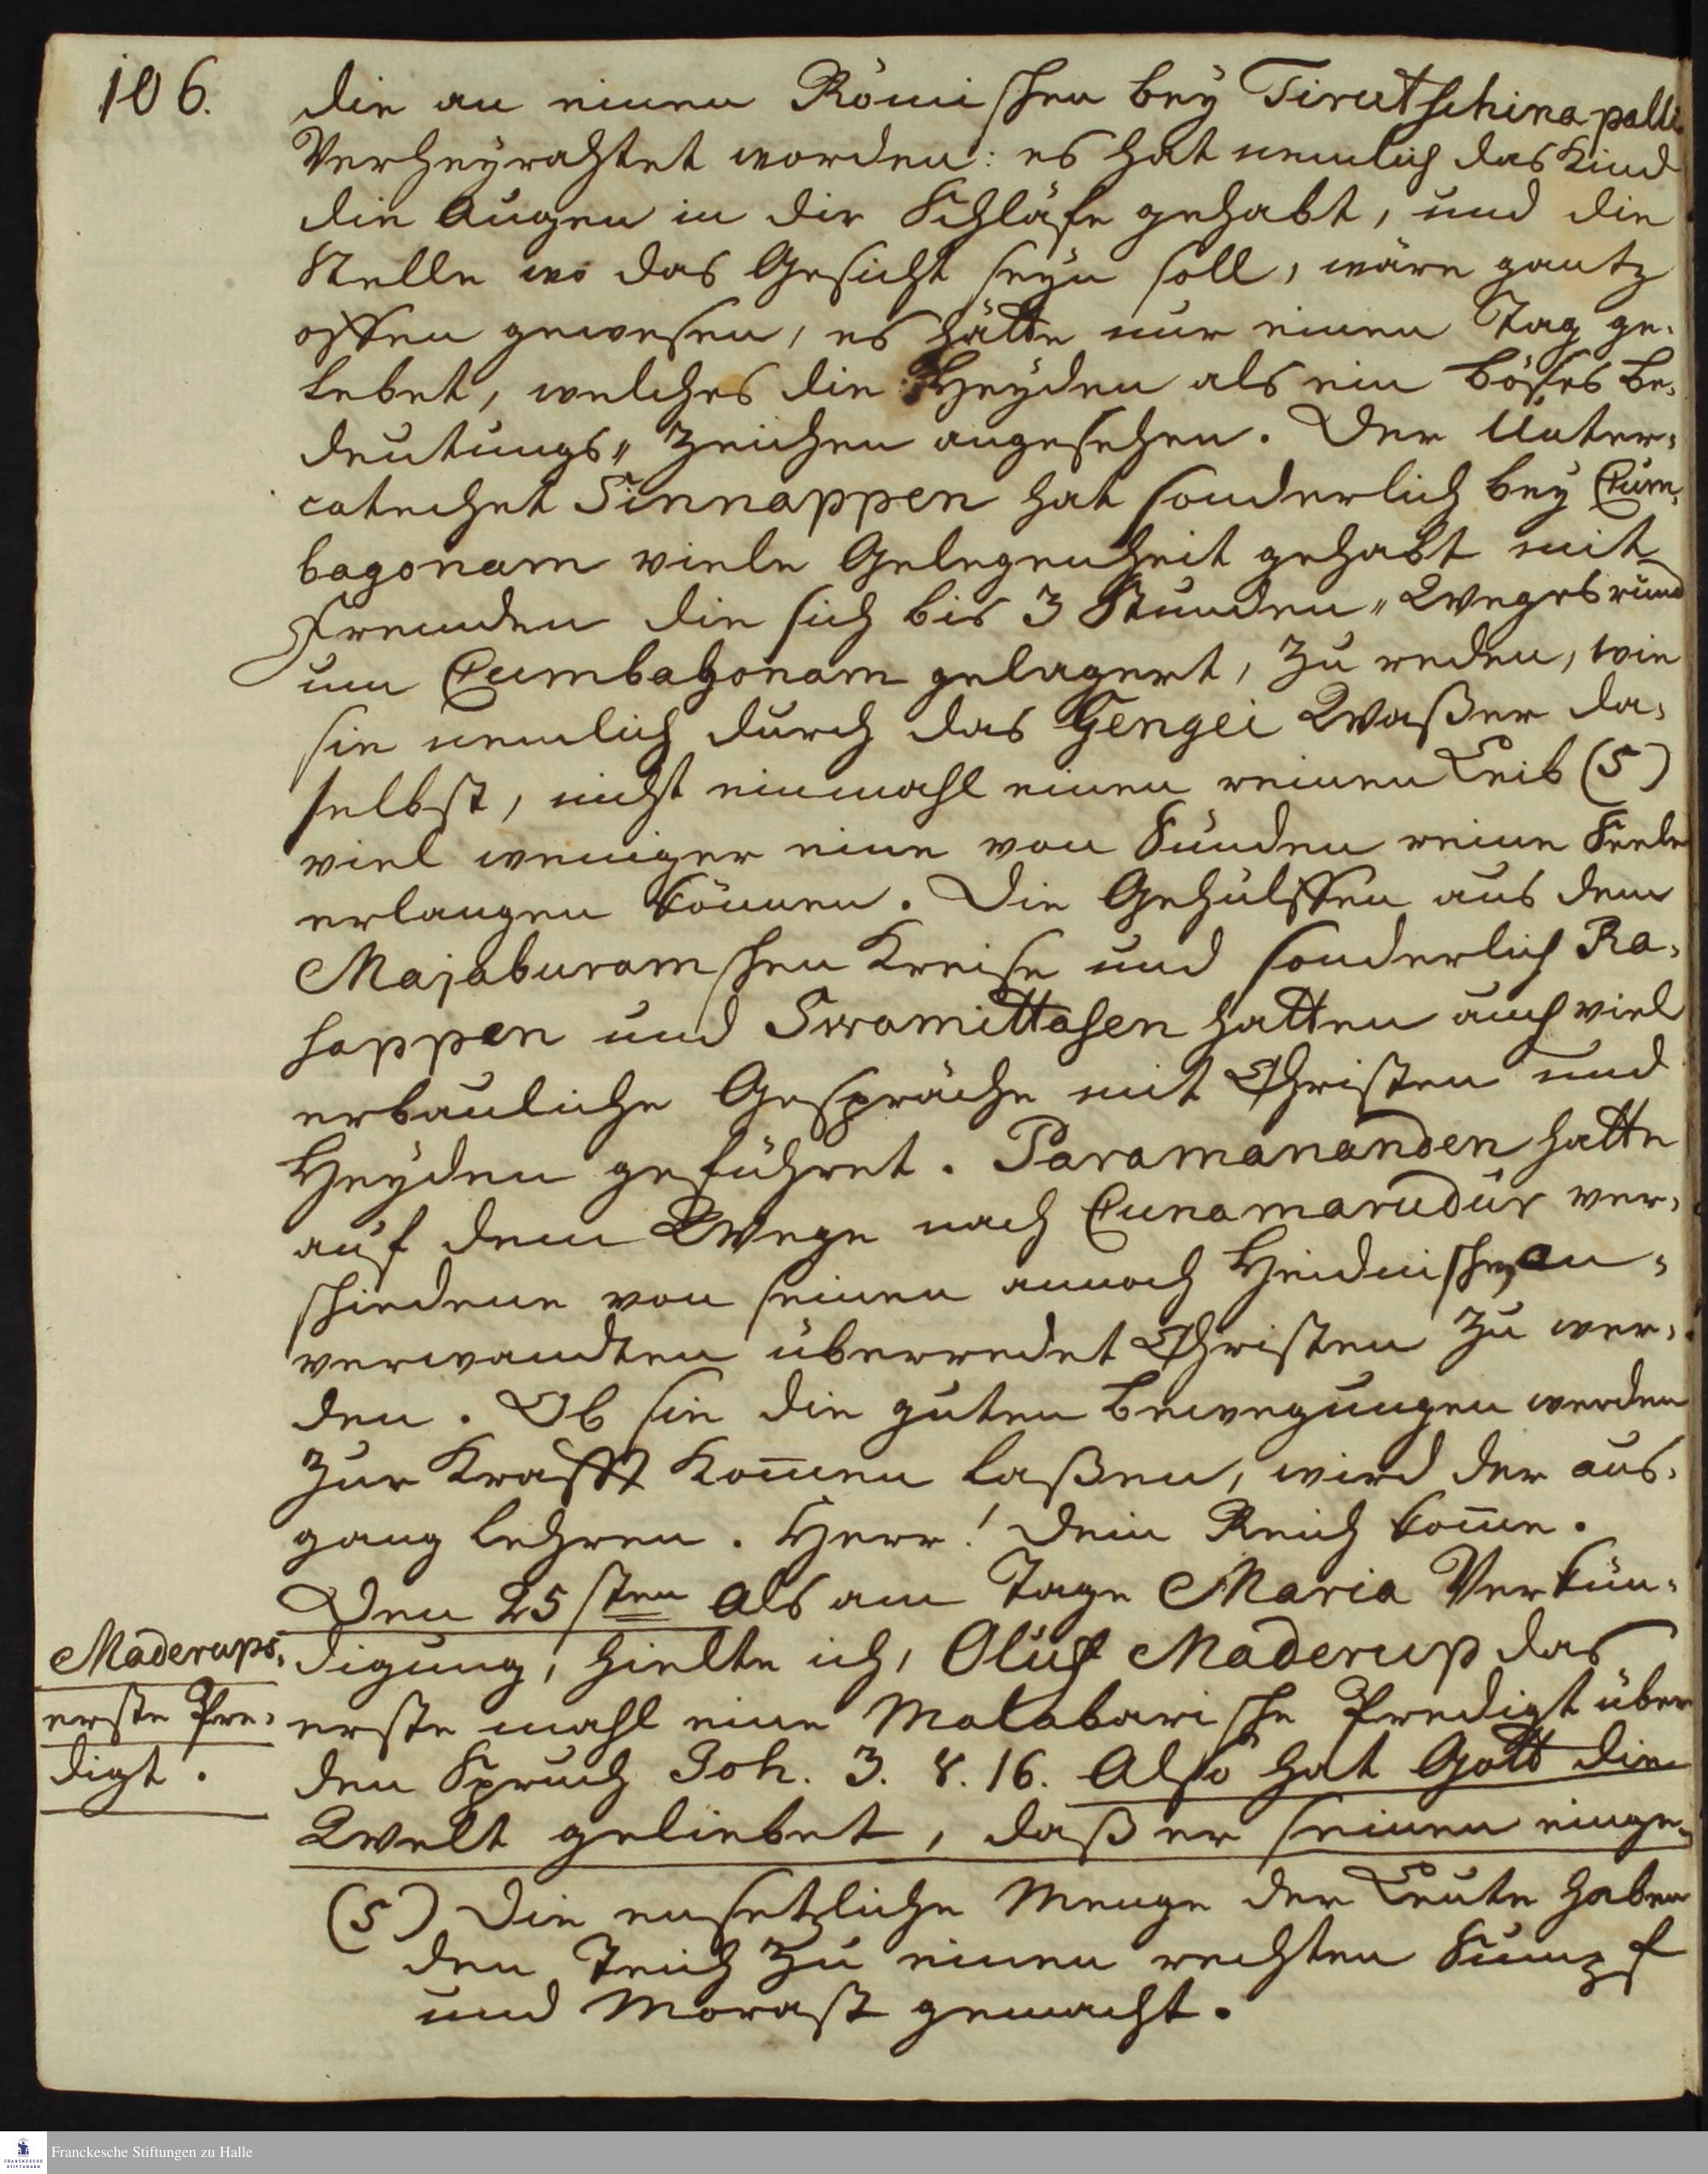 106.
die an einen Römischen bey Tirutschinapalli
Verheyrahtet worden: es hat nemlich das Kind
die Augen in die Schläfe gehabt, und die
Stelle wo das Gesicht seyn soll, wäre gantz
offen gewesen, es hätte nur einen Tag ge-
lebet, welches die Heyden als ein böses Be-
deutungs" Zeichen angesehen. Der Unter-
catechet Sinnappen hat sonderlich bey Cum-
bagonam viele Gelegenheit gehabt mit
Fremden die sich bis 3 Stunden" Weges rund
um Cumbagonam gelagert, zu reden, wie
sie nemlich durch das Gengei Waßer da-
selbst, nicht einmahl einen reinen Leib (5)
viel weniger eine von Sünden reine Seele
erlangen können. Die Gehülffen aus dem
Majaburamschen Kreise und sonderlich Ra-
happen und Swamittasen hatten auch viel
erbauliche Gespräche mit Christen und
Heyden geführet. Paramananden hatte
auf dem Wege nach Cunamarudur ver-
schiedene von seinen annoch Heidnischen an-
verwandten überredet Christen zu wer-
den. Ob sie die guten Bewegungen werden
zur Krafft kom̄en laßen, wird der aus-
gang lehren. Herr! dein Reich kom̄e.
Den 25sten als am Tage Maria Verkün-
digung, hielte ich, Oluf Maderup das
erste mahl eine Malabarische Predigt über
den Spruch Joh. 3. v. 16. Also hat Gott die
Welt geliebet, daß er seinen einge-
Maderups
erste Pre-
digt.
(5) Die ensetzliche Menge der Leute haben
den Teich zu einen rechten Sumpf
und Morast gemacht.
Franckesche Stiftungen zu Halle
FRANCKESCHE
STIFTUNGEN